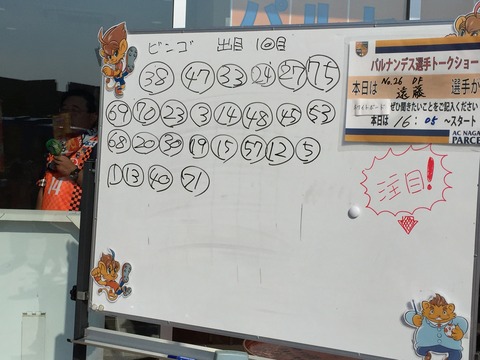 ビンゴ 出目 1回目
38 47 33 24 27 75
69 70 23 3 14 48 45 53
68 20 30 19 15 57 12 5
1 13 40 21
パルナンデス選手トークショー
本日は No.26 DF 遠藤 選手が
ぜひ聞きたいことをご記入ください
本日は 16:05 ~スタート
AC NAGA
PARCE
注目!
14